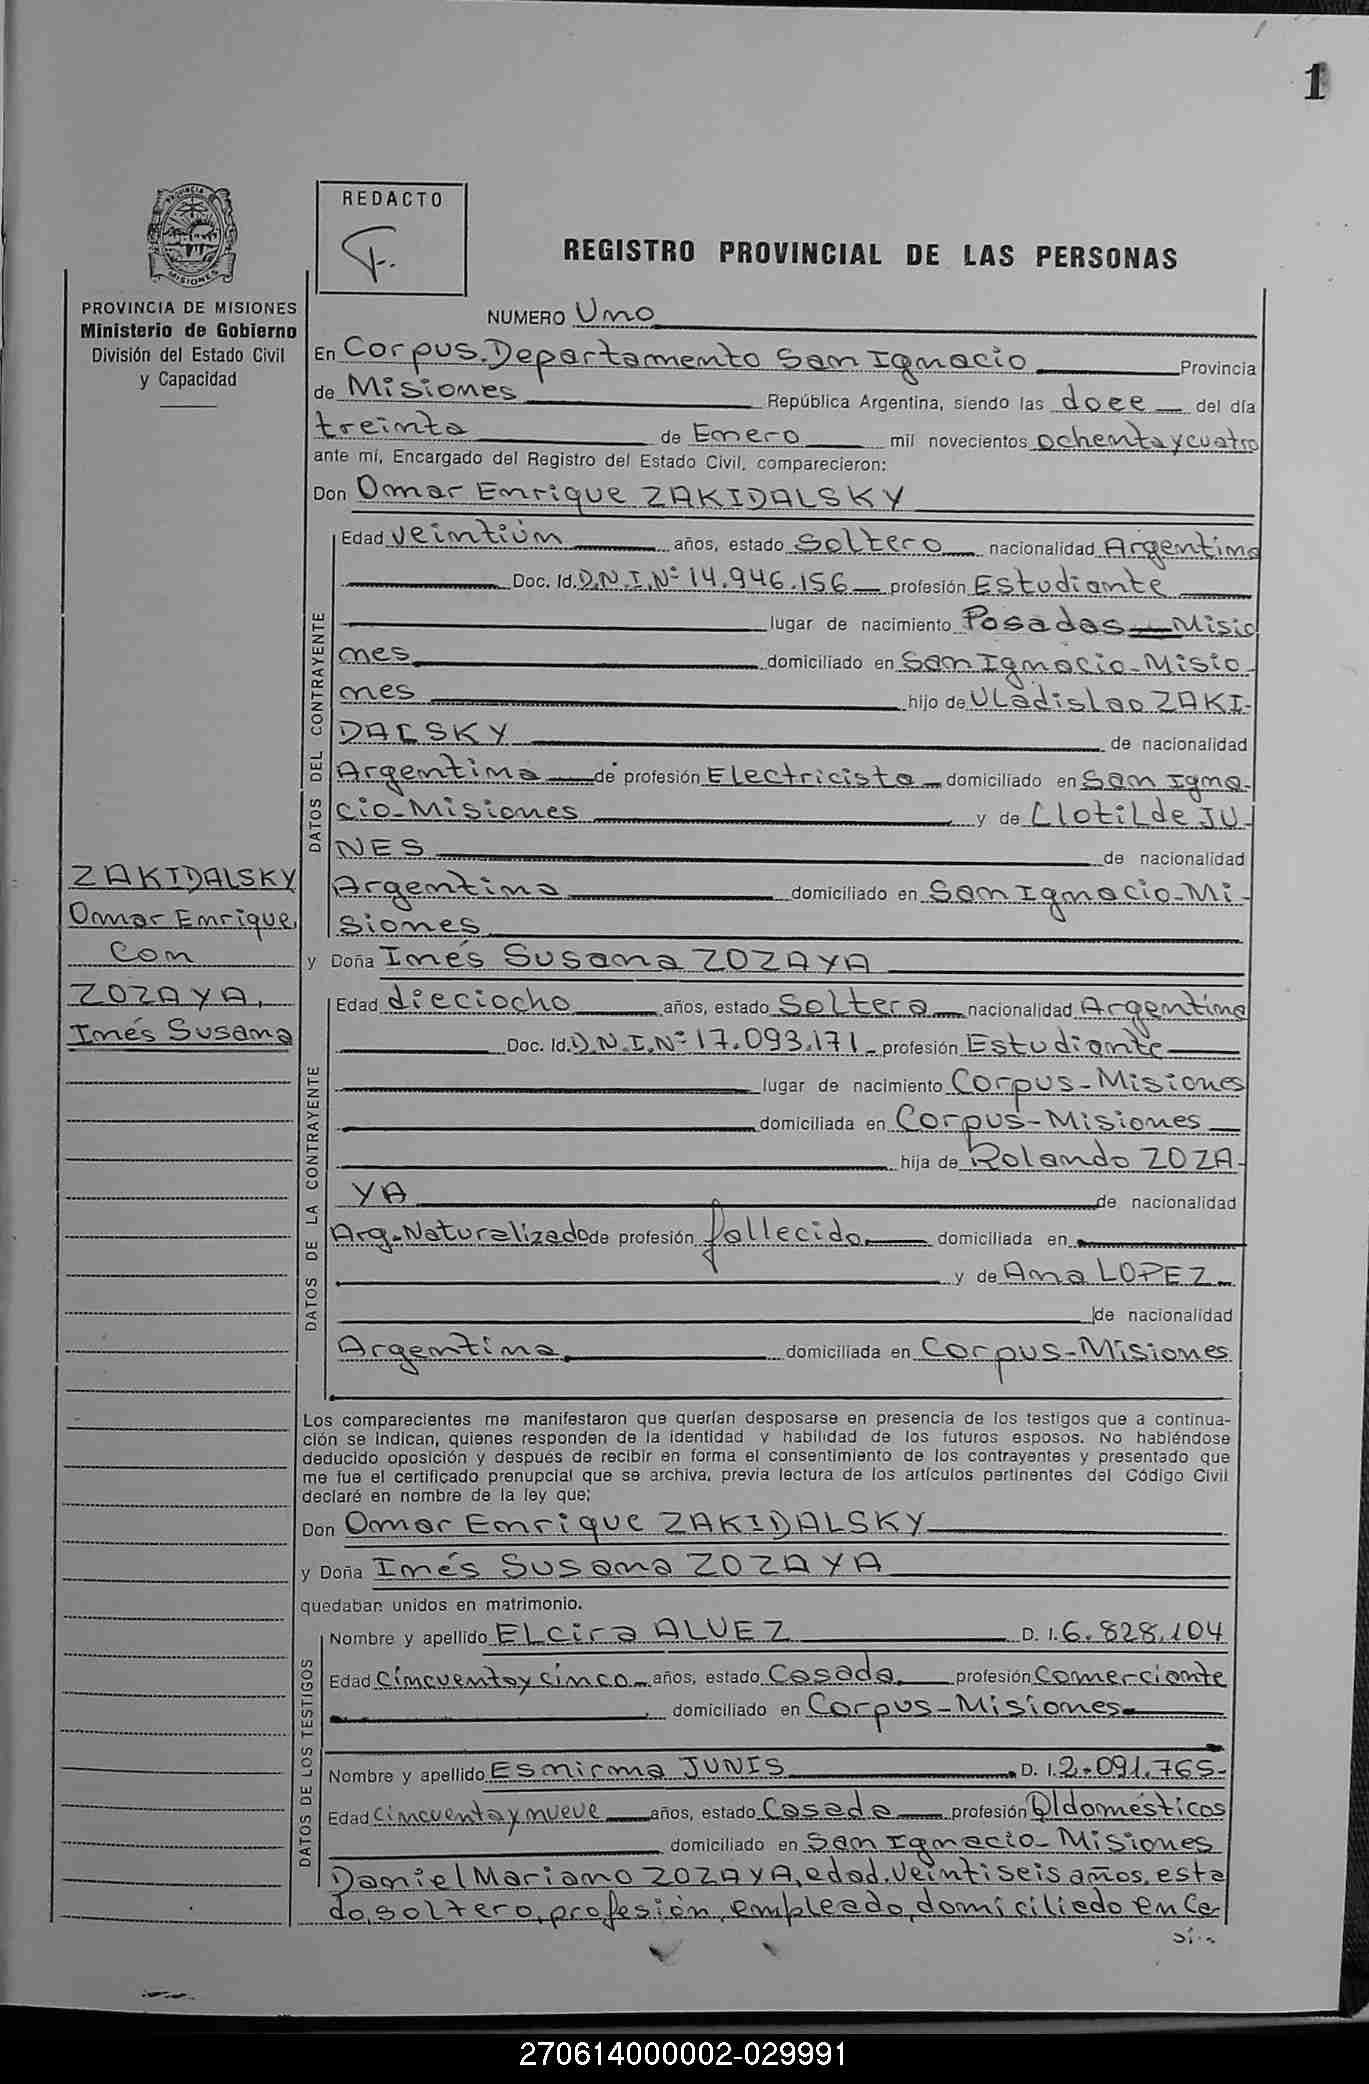 1
REDACTO
F.
PROVINCIA
MISIONES
PROVINCIA DE MISIONES
Ministerio de Gobierno
División del Estado Civil
y Capacidad
REGISTRO PROVINCIAL DE LAS PERSONAS
NUMERO Uno
En Corpus, Departamento San Ignacio Provincia
de Misiones República Argentina, siendo las doce del día
treinta de Enero mil novecientos ochenta y cuatro
ante mí, Encargado del Registro del Estado Civil, comparecieron:
Don Omar Enrique ZAKIDALSKY
DATOS DEL CONTRAYENTE
Edad veintiún años, estado Soltero nacionalidad Argentina
Doc. Id. D.N.I.Nº 14.946.156 profesión Estudiante
lugar de nacimiento Posadas - Misio
nes domiciliado en San Ignacio-Misio-
nes hijo de Uladislao ZAKI-
DALSKY de nacionalidad
Argentina de profesión Electricista domiciliado en San Igna-
cio-Misiones y de Clotilde JU-
NES de nacionalidad
Argentina domiciliado en San Ignacio-Mi-
siones
ZAKIDALSKY
Omar Enrique
Con
ZOZAYA,
Inés Susana
y Doña Inés Susana ZOZAYA
DATOS DE LA CONTRAYENTE
Edad dieciocho años, estado Soltera nacionalidad Argentina
Doc. Id. D.N.I.Nº 17.093.171 profesión Estudiante
lugar de nacimiento Corpus-Misiones
domiciliada en Corpus-Misiones
hija de Rolando ZOZA-
YA de nacionalidad
Arg. Naturalizado de profesión fallecido domiciliada en
y de Ana LOPEZ
de nacionalidad
Argentina domiciliada en Corpus-Misiones
Los comparecientes me manifestaron que querían desposarse en presencia de los testigos que a continua-
ción se indican, quienes responden de la identidad y habilidad de los futuros esposos. No habiéndose
deducido oposición y después de recibir en forma el consentimiento de los contrayentes y presentado que
me fue el certificado prenupcial que se archiva, previa lectura de los artículos pertinentes del Código Civil
declaré en nombre de la ley que:
Don Omar Enrique ZAKIDALSKY
y Doña Inés Susana ZOZAYA
quedaban unidos en matrimonio.
DATOS DE LOS TESTIGOS
Nombre y apellido Elcira ALVEZ D. I. 6.828.104
Edad Cincuenta y cinco años, estado Casada profesión Comerciante
domiciliado en Corpus-Misiones
Nombre y apellido Esnirma JUNIS D. I. 2.091.765-
Edad Cincuenta y nueve años, estado Casada profesión Q/domésticos
domiciliado en San Ignacio-Misiones
Daniel Mariano ZOZAYA, edad, veintiseis años, esta
do, soltero, profesión, empleado, domiciliado en Ce-
270614000002-029991